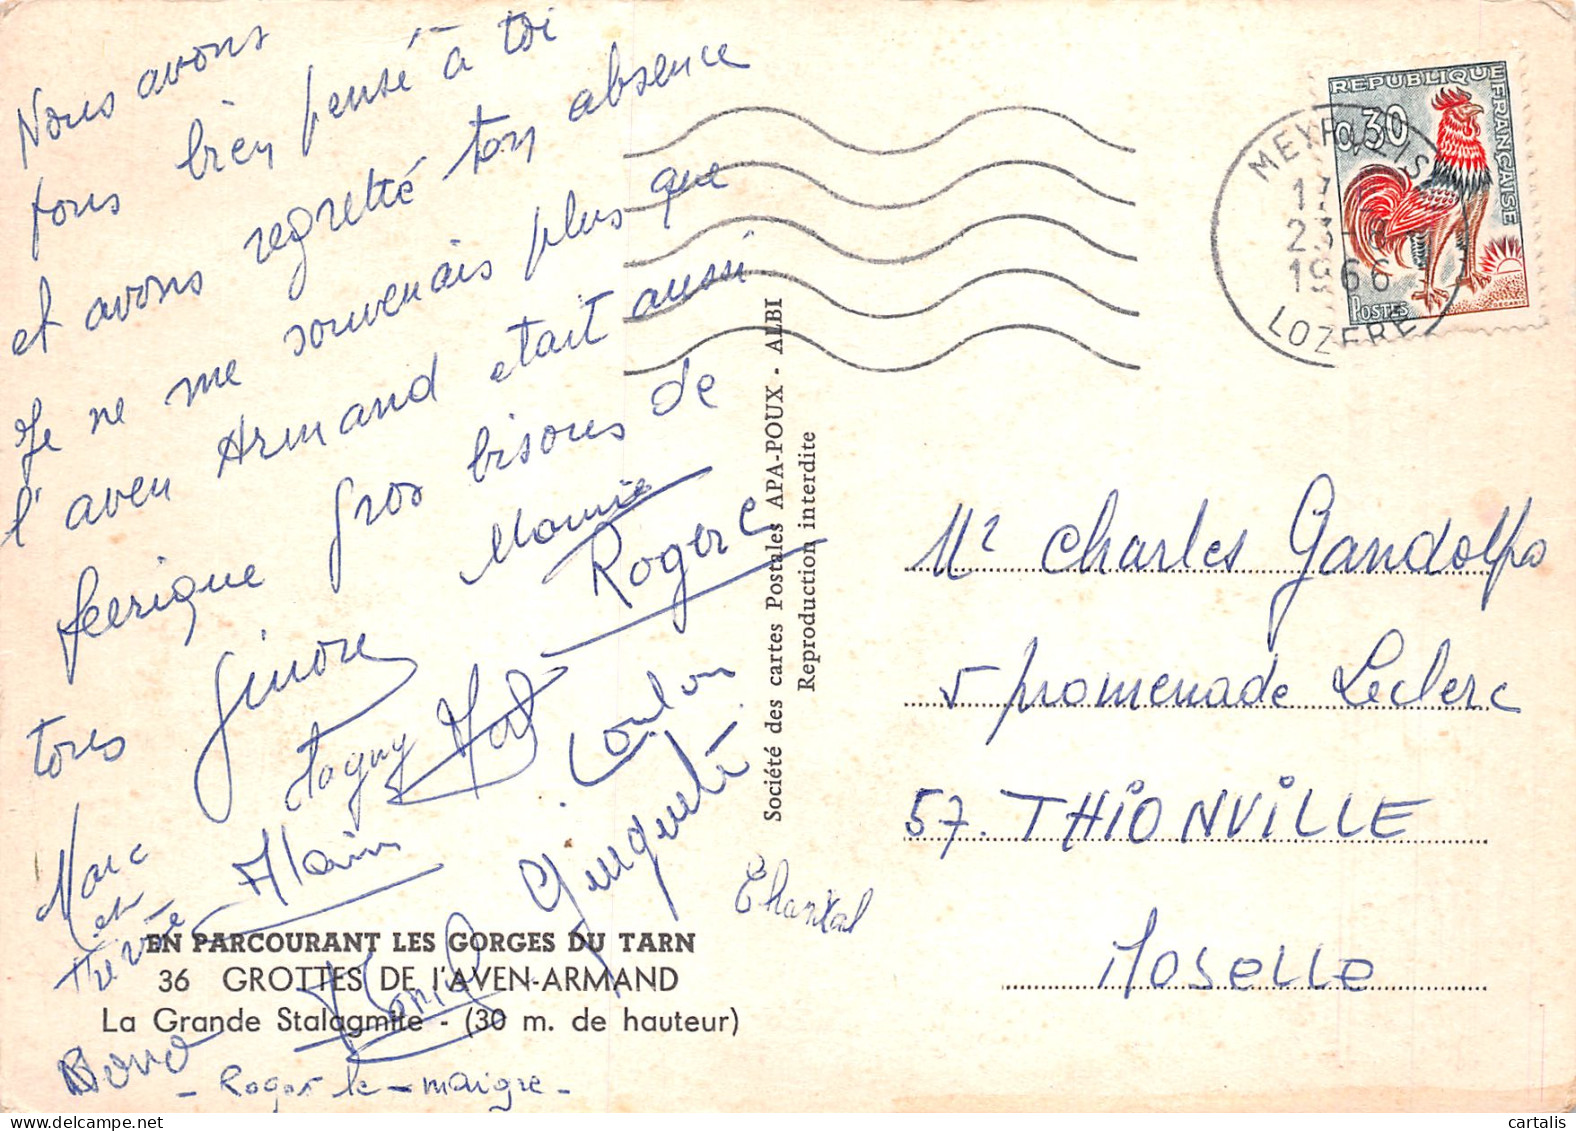 Nous avons
tous bien pensé à toi
et avons regretté ton absence
Je ne me souvenais plus que
l'aven Armand était aussi
féerique gros bisous de
tous
Mounie
Roger C
Ginore
Marc
et
Alain
Coulon
Chantal
- Roger le maigre -
EN PARCOURANT LES GORGES DU TARN
36 GROTTES DE l'AVEN-ARMAND
La Grande Stalagmite - (30 m. de hauteur)
Société des cartes Postales APA-POUX - ALBI
Reproduction interdite
REPUBLIQUE FRANÇAISE
0,30
POSTES
MEYRUEIS
17
23-
1966
LOZERE
Mr Charles Gandolfo
5 promenade Leclerc
57. THIONVILLE
Moselle
cartalis